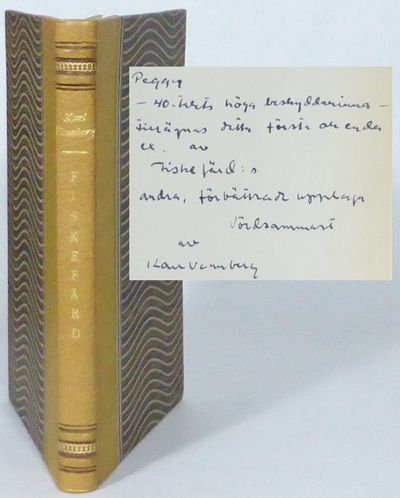 Karl
Vennberg
FISKEFÄRD
Peggy
– 40-talets höga beskyddarinna –
tillägnas detta första och enda
ex. av
Fiskefärd:s
andra, förbättrade upplaga
Vördsammast
av
Karl Vennberg